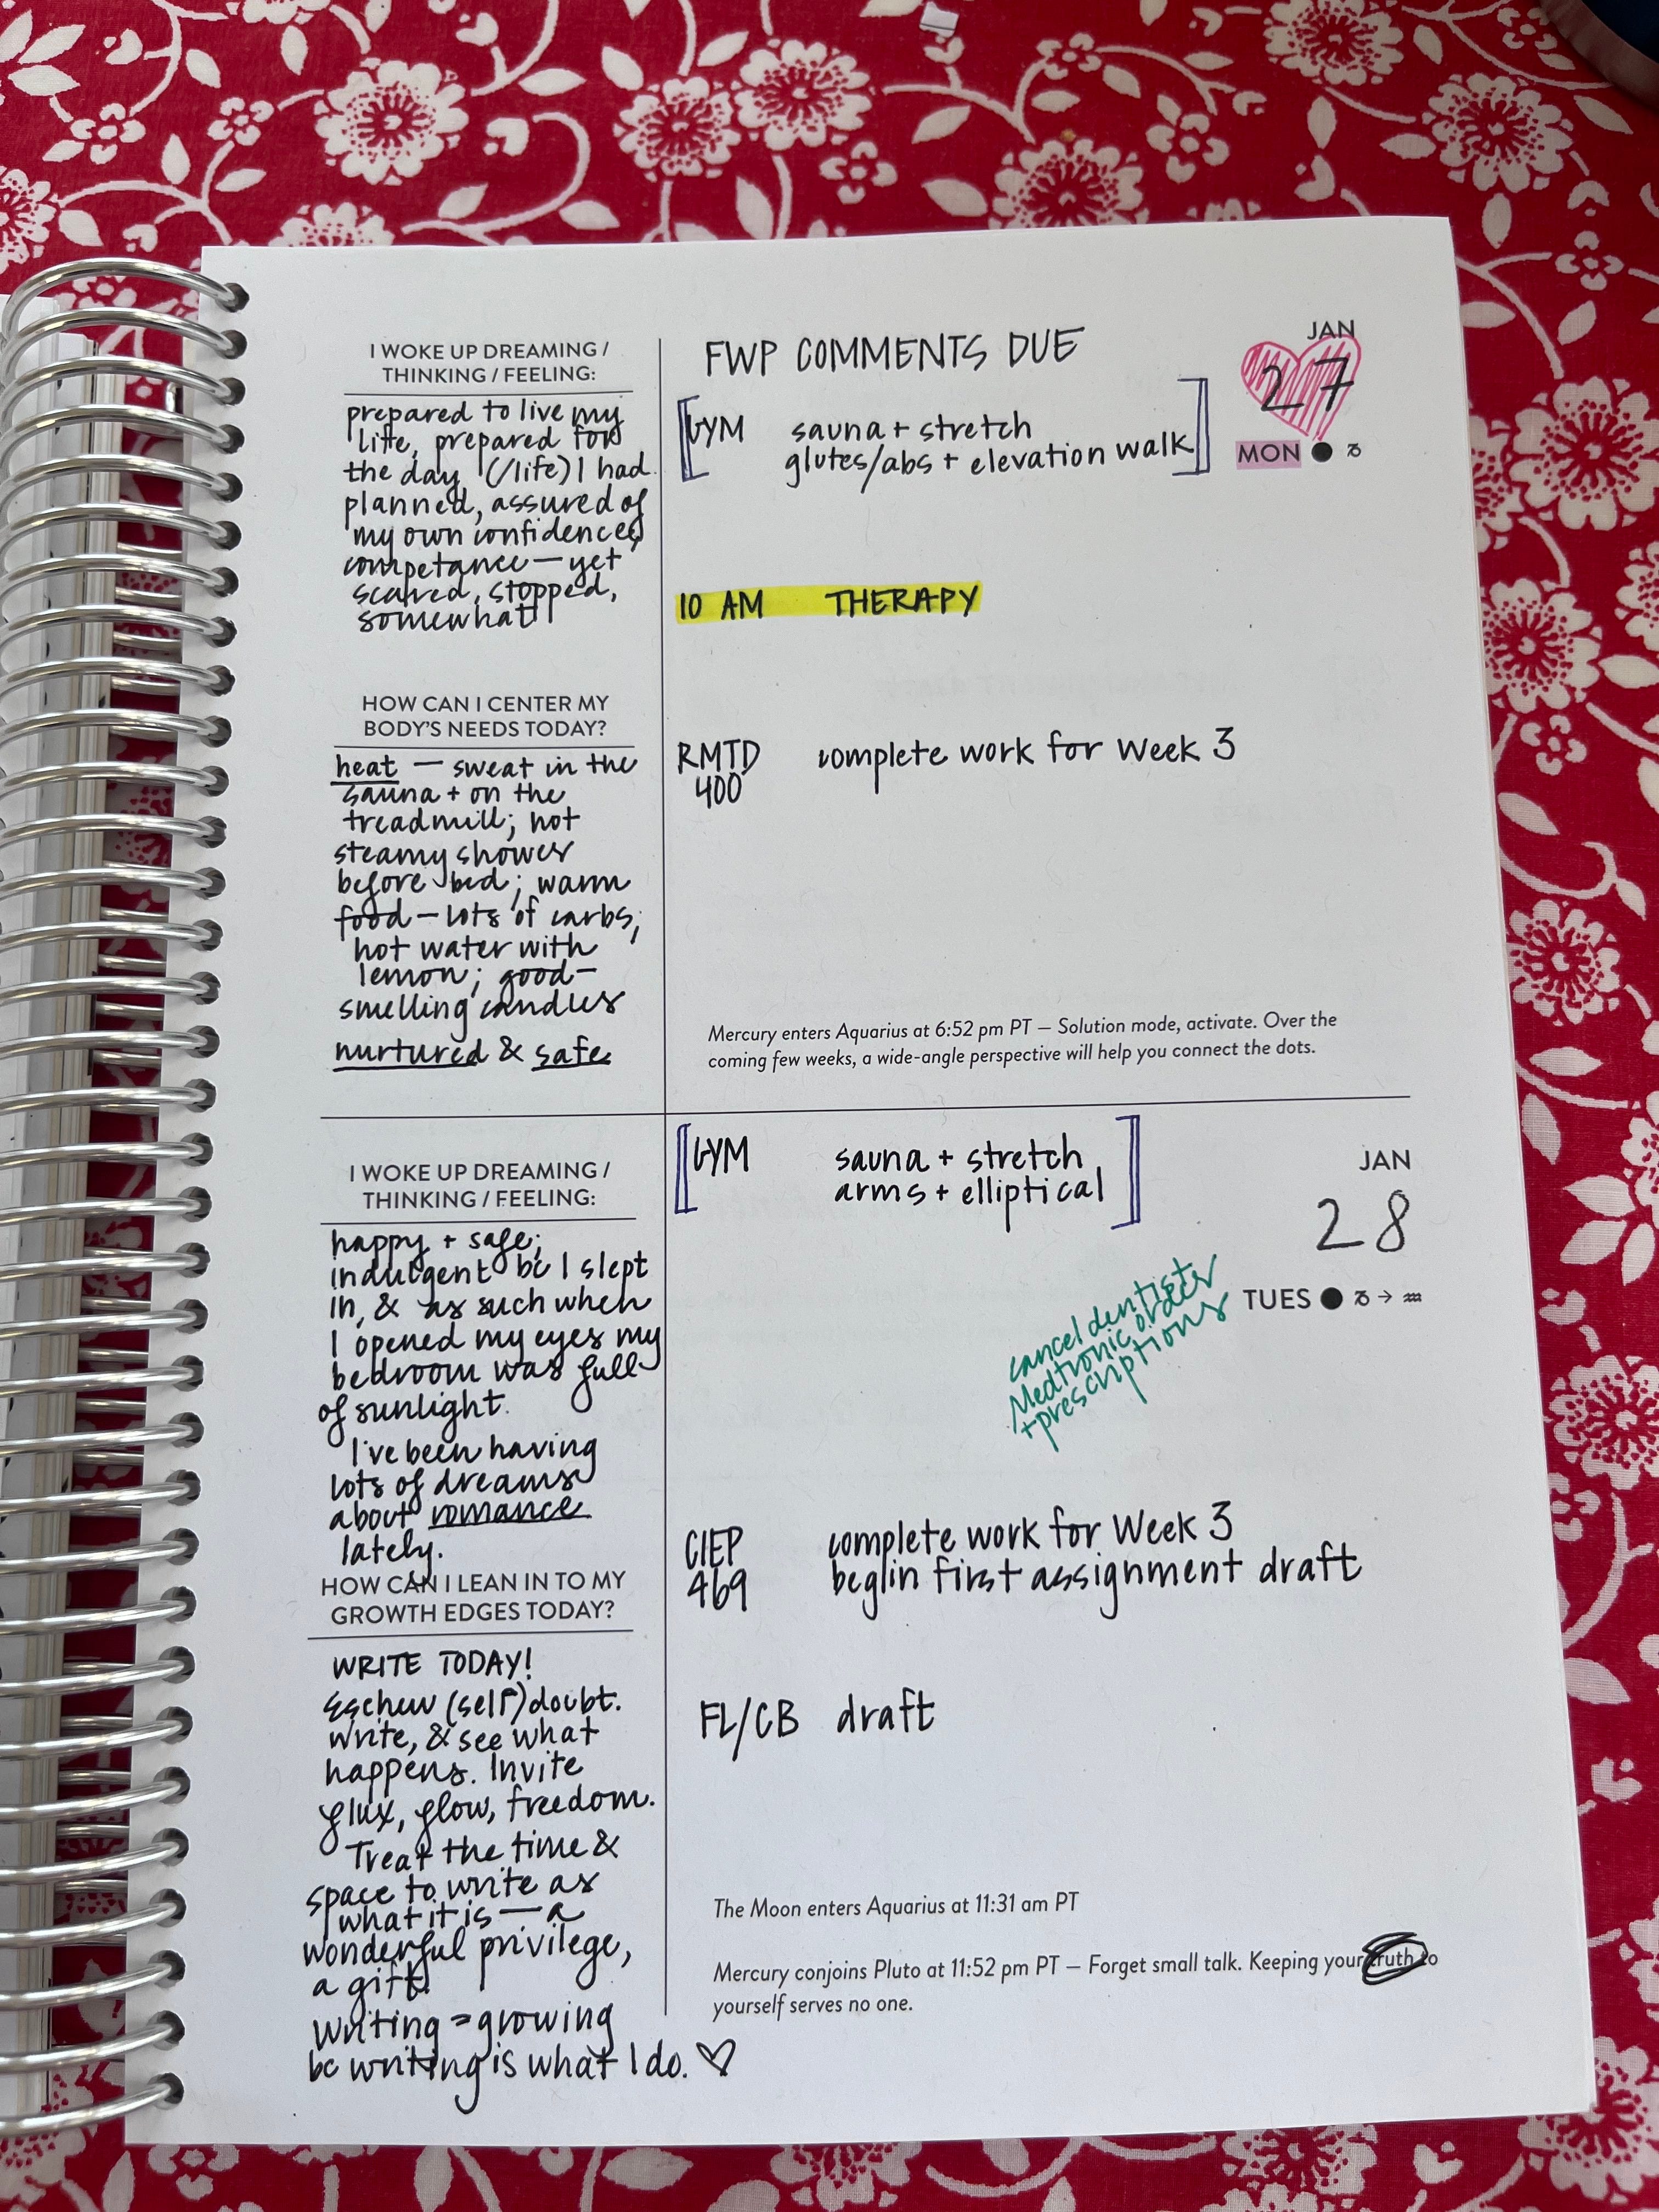 I WOKE UP DREAMING /
THINKING / FEELING:
prepared to live my
life, prepared for
the day (/life) I had
planned, assured of
my own confidence,
competance — yet
scared, stopped,
somewhat!
HOW CAN I CENTER MY
BODY'S NEEDS TODAY?
heat — sweat in the
sauna + on the
treadmill; hot
steamy shower
before bed; warm
food — lots of carbs;
hot water with
lemon; good-
smelling candles
nurtured & safe
FWP COMMENTS DUE
GYM sauna + stretch
glutes/abs + elevation walk
10 AM THERAPY
RMTD complete work for Week 3
400
Mercury enters Aquarius at 6:52 pm PT — Solution mode, activate. Over the
coming few weeks, a wide-angle perspective will help you connect the dots.
JAN
27
MON
I WOKE UP DREAMING /
THINKING / FEELING:
happy + safe;
indulgent bc I slept
in, & as such when
I opened my eyes my
bedroom was full
of sunlight.
I've been having
lots of dreams
about romance
lately.
HOW CAN I LEAN IN TO MY
GROWTH EDGES TODAY?
WRITE TODAY!
Eschew (self) doubt.
Write, & see what
happens. Invite
flux, flow, freedom.
Treat the time &
space to write as
what it is — a
wonderful privilege,
a gift!
Writing = growing
bc writing is what I do. ♡
GYM sauna + stretch
arms + elliptical
JAN
28
TUES
cancel dentist
Medtronic order
+ prescriptions
CIEP complete work for Week 3
469 begin first assignment draft
FL/CB draft
The Moon enters Aquarius at 11:31 am PT
Mercury conjoins Pluto at 11:52 pm PT — Forget small talk. Keeping your truth to
yourself serves no one.